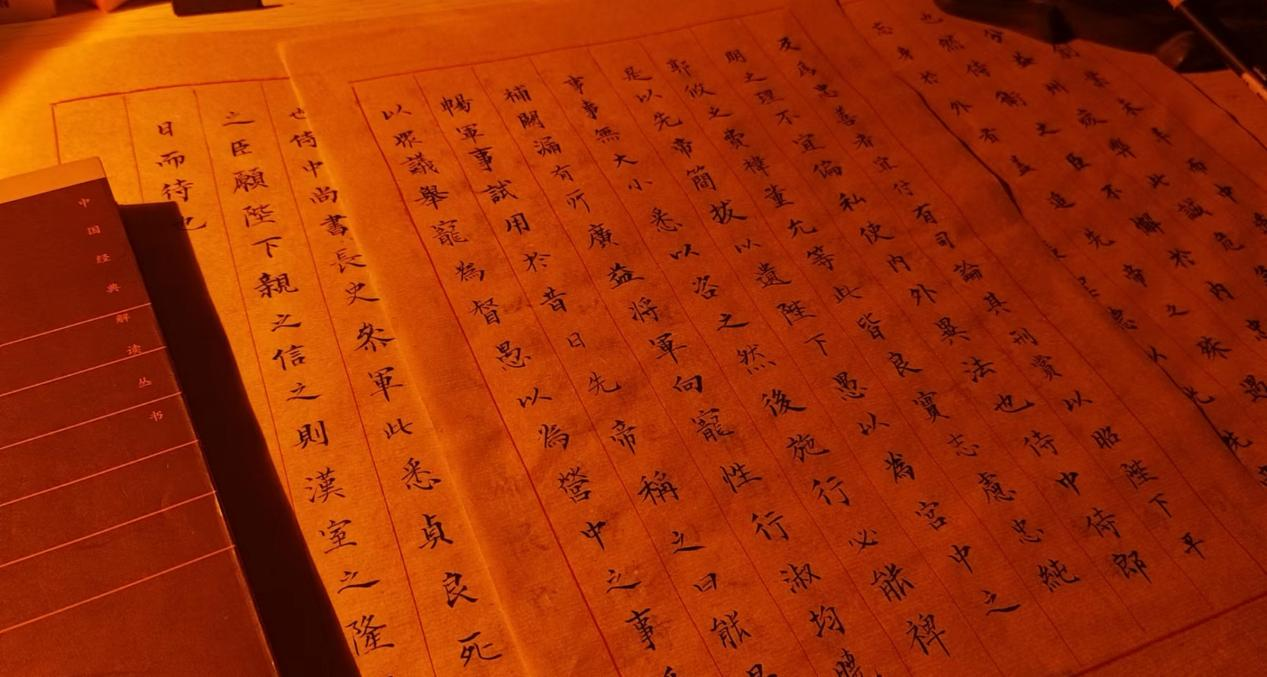 創業未半而中
分益州疲弊此誠危急
也然侍衛之臣不懈於內忠
忘身於外者蓋追先帝之殊遇
及為忠善者宜付有司論其刑賞以昭陛下平
明之理不宜偏私使內外異法也侍中侍郎
郭攸之費禕董允等此皆良實志慮忠純
是以先帝簡拔以遺陛下愚以為宮中之
事事無大小悉以咨之然後施行必能裨
補闕漏有所廣益將軍向寵性行淑均曉
暢軍事試用於昔日先帝稱之曰能是
以眾議舉寵為督愚以為營中之事悉
也侍中尚書長史參軍此悉貞良死
之臣願陛下親之信之則漢室之隆
日而待也
中国经典解读丛书